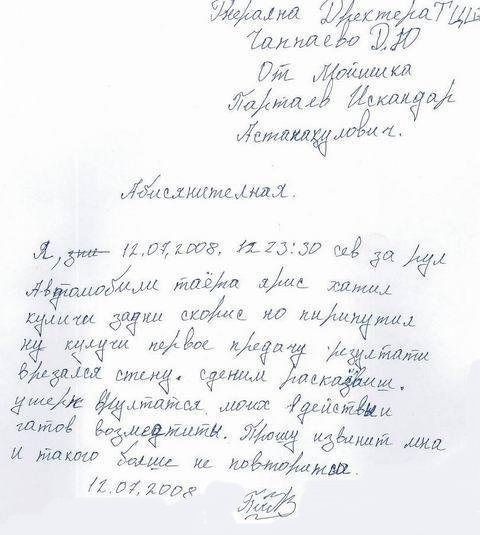 Генерална Дректера ТЦ
Чаппаево Д.Ю
От Мойишка
Партаев Искандар
Астанакулович.
Абисянителная.
Я, 12.07,2008. 12 23:30 сев за рул
Автомобили таёра ярис хатил
куличи задни скорис но пирипутил
ну кулучи первое предачу резултати
врезался стену. сденим расказаиш.
ушерн врултатся моих действи
гатов возместиты. Прошу извинит мна
и такого болше не повторитса.
12.07.2008